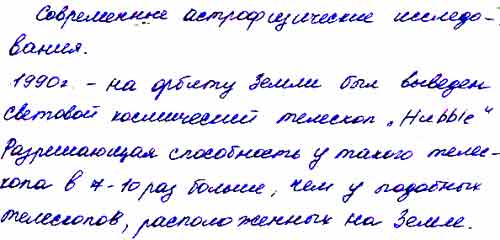 Современные астрофизические исследо-
вания.
1990г. - на орбиту Земли был выведен
световой космический телескоп „Hubble“
Разрешающая способность у такого телес-
копа в 7-10 раз больше, чем у подобных
телескопов, расположенных на Земле.